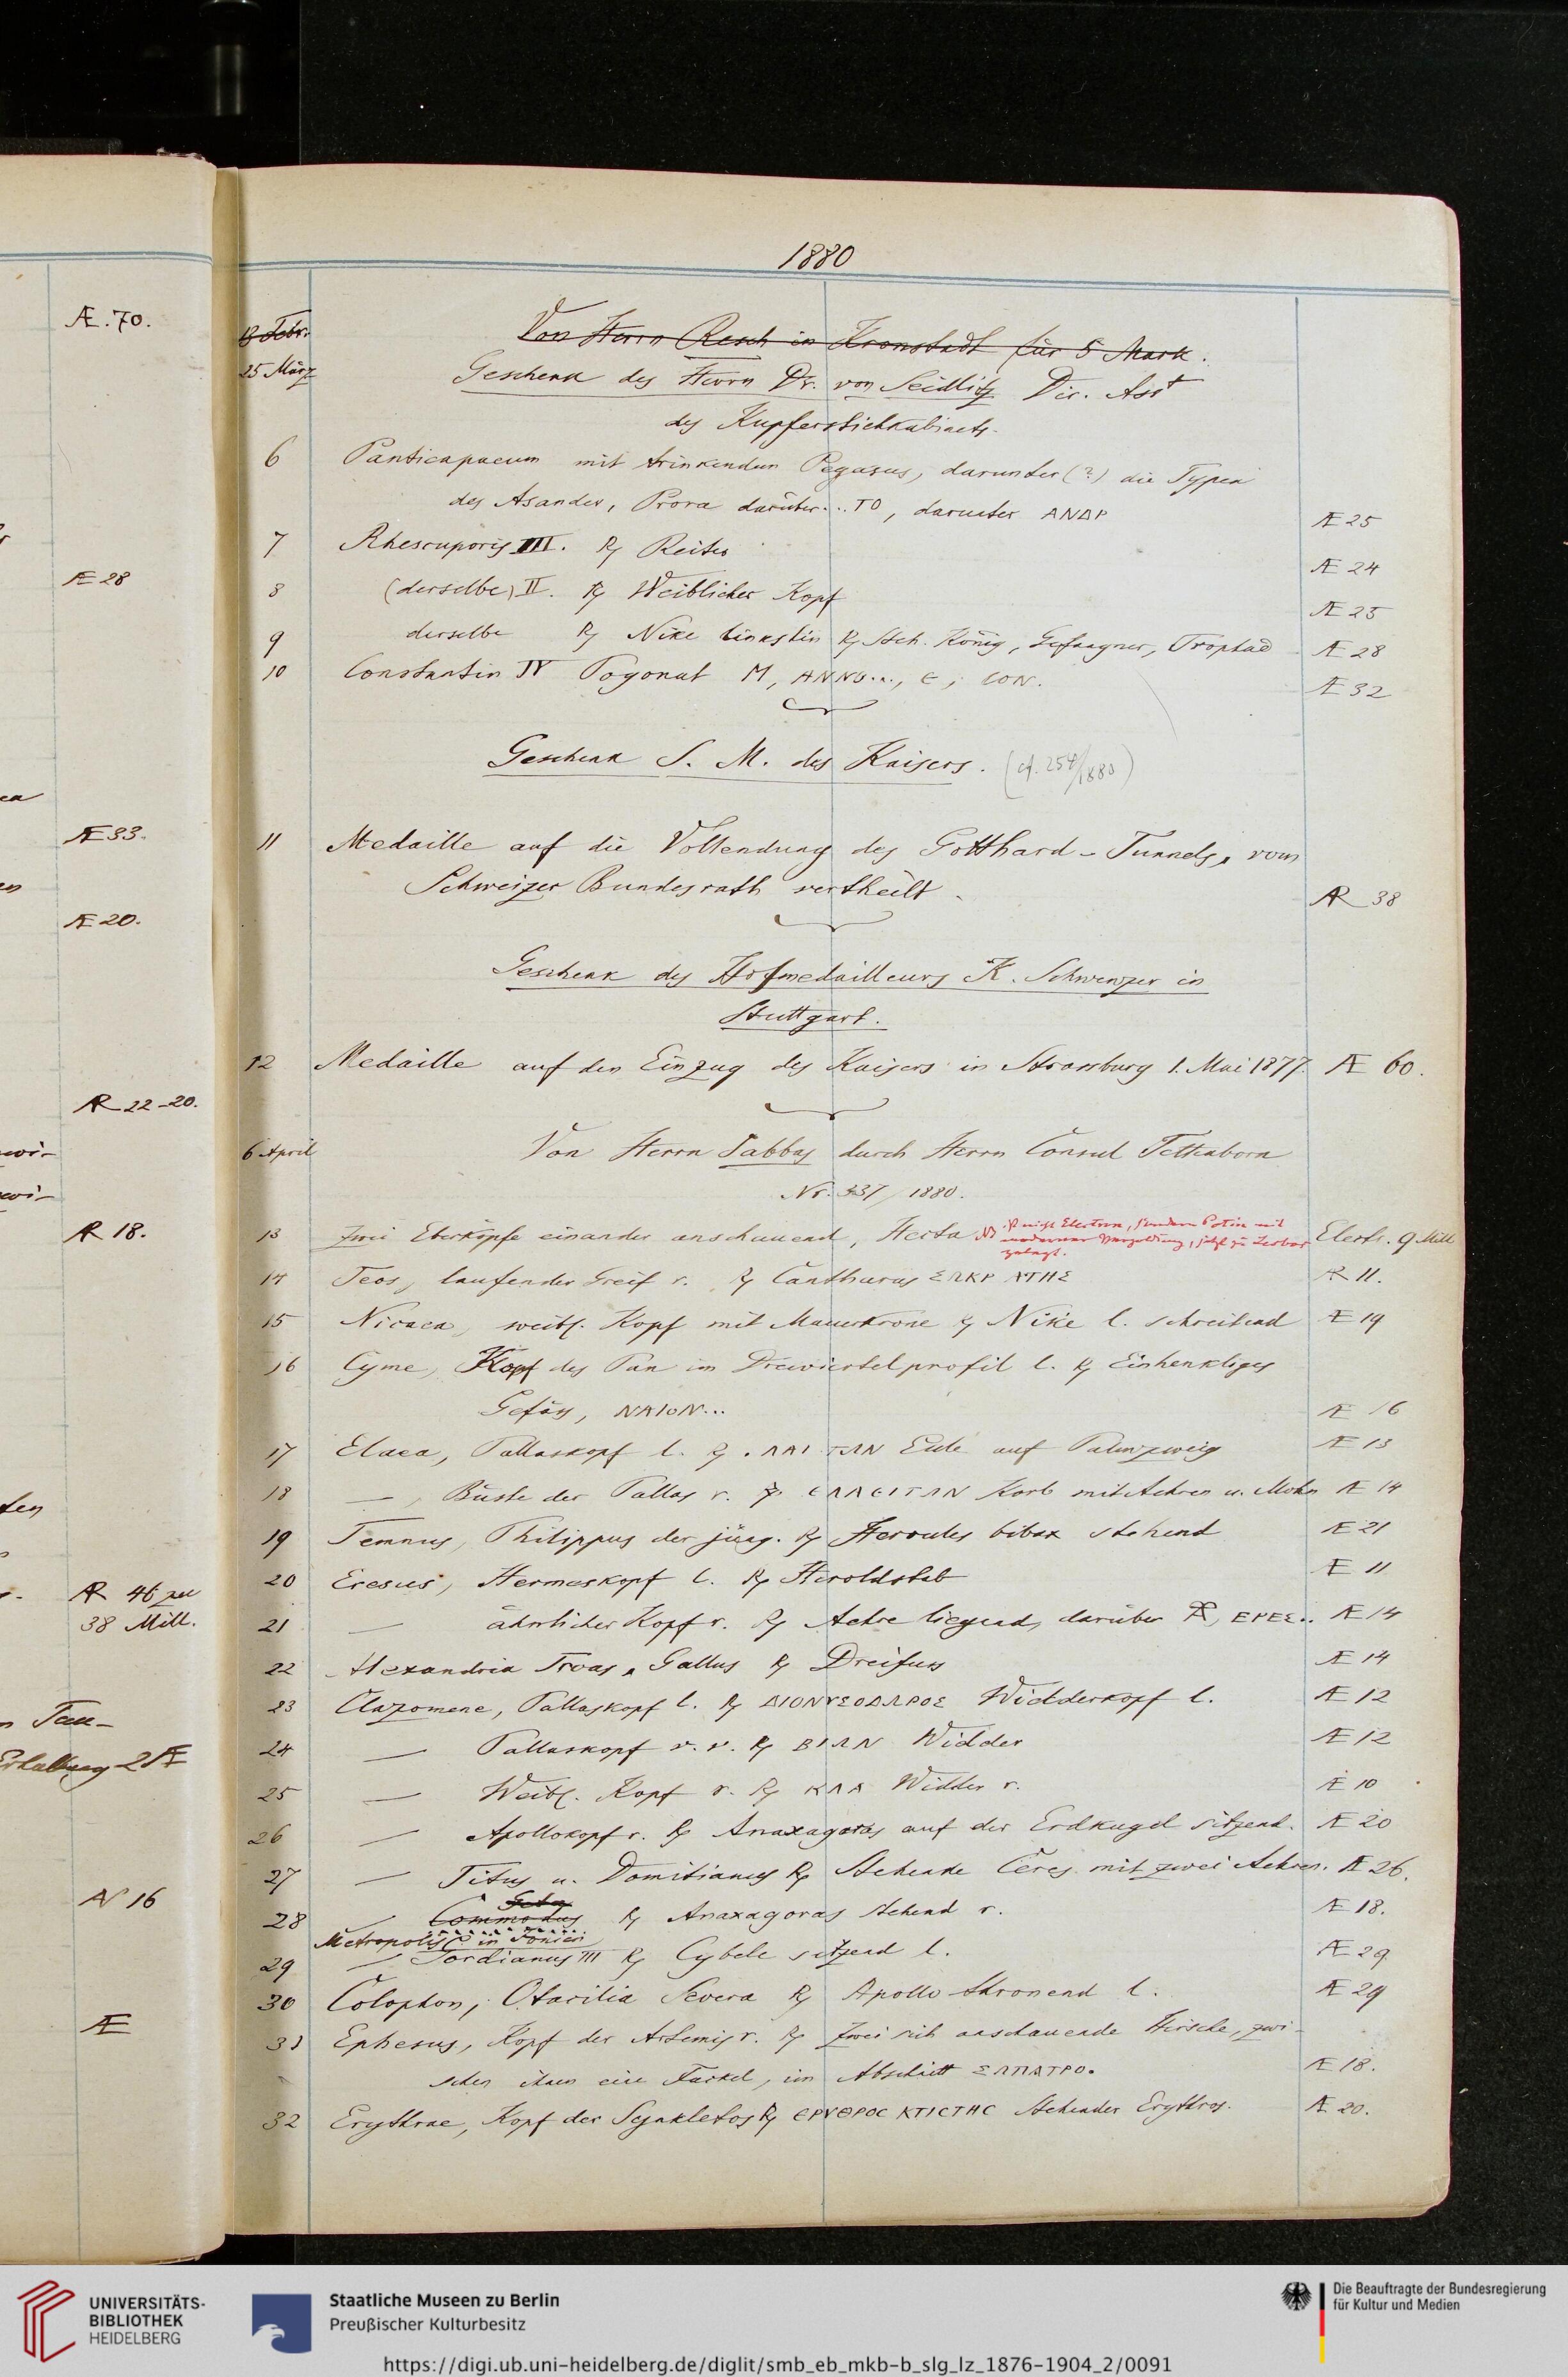 1880
Æ. 70.
18 Febr. Von Herrn Resch in Kronstadt für 5 Mark.
25 März Geschenk des Herrn Dr. von Seidlitz Dir. Asst
des Kupferstichkabinets.
6 Panticapaeum mit trinkendem Pegasus, darunter (?) die Typen
des Asander, Prora darüber ... TO, darunter ΑΝΔΡ Æ 25
7 Rhescuporis III. ℞ Reiter Æ 24
Æ 28
8 (derselbe) II. ℞ Weiblicher Kopf Æ 25
9 derselbe ℞ Nike linkshin ℞ Steh. König, Gefangner, Trophäe Æ 28
10 Constantin IV Pogonat M, ANNO..., Є, CON. Æ 32
Geschenk S. M. des Kaisers. (cf. 254/1880)
Æ 33.
11 Medaille auf die Vollendung des Gotthard-Tunnels, vom
Schweizer Bundesrath vertheilt. AR 38
Æ 20.
Geschenk des Hofmedailleurs K. Schwenzer in
Stuttgart.
12 Medaille auf den Einzug des Kaisers in Strassburg 1. Mai 1877. Æ 60.
AR 22-20.
6 April Von Herrn Sabbas durch Herrn Consul Tettenborn
Nr. 337/1880.
AR 18.
13 Zwei Eberköpfe einander anschauend, Hecta NB ist nicht Electron, sondern Potin mit
moderner Vergoldung, jetzt zu Lesbos
gelegt. Electr. 9 Mill
14 Teos, laufender Greif r. ℞ Cantharus ΣΩΚΡΑΤΗΣ AR 11.
15 Nicaea, weibl. Kopf mit Mauerkrone ℞ Nike l. schreitend Æ 19
16 Cyme, Kopf des Pan im Dreiviertelprofil l. ℞ Einhenkliges
Gefäss, ΝΑΙΟΝ... Æ 16
17 Elaea, Pallaskopf l. ℞ .ΛΑΙΤΩΝ Eule auf Palmzweig Æ 13
18 — , Büste der Pallas r. ℞ ЄΛΑЄΙΤΩΝ Korb mit Aehren u. Mohn Æ 14
19 Temnus, Philippus der jüng. ℞ Hercules bibax stehend Æ 21
20 Eresus, Hermeskopf l. ℞ Heroldstab Æ 11
AR 46 zu
38 Mill.
21 — ähnlicher Kopf r. ℞ Aehre liegend, darüber ΕΡΕΣ.. Æ 14
22 Alexandria Troas, Gallus ℞ Dreifuss Æ 14
23 Clazomene, Pallaskopf l. ℞ ΔΙΟΝΥΣΟΔΩΡΟΣ Widderkopf l. Æ 12
24 — Pallaskopf v. v. ℞ ΒΙΩΝ Widder Æ 12
25 — Weibl. Kopf r. ℞ ΚΛΑ Widder r. Æ 10
26 — Apollokopf r. ℞ Anaxagoras auf der Erdkugel sitzend. Æ 20
27 — Titus u. Domitianus ℞ Stehende Ceres mit zwei Aehren. Æ 26.
N 16
Geta
28 — Commodus ℞ Anaxagoras stehend r. Æ 18.
Metropolis in Ionien
29 — Gordianus III ℞ Cybele sitzend l. Æ 29
30 Colophon, Otacilia Severa ℞ Apollo thronend l. Æ 29
Æ
31 Ephesus, Kopf der Artemis r. ℞ Zwei sich anschauende Hirsche, zwi-
schen ihnen eine Fackel, im Abschnitt ΣΩΠΑΤΡΟ. Æ 18.
32 Erythrae, Kopf der Synkletos ℞ ЄΡΥΘΡΟС ΚΤΙСΤΗС stehender Erythros. Æ 20.
UNIVERSITÄTS-
BIBLIOTHEK
HEIDELBERG
Staatliche Museen zu Berlin
Preußischer Kulturbesitz
Die Beauftragte der Bundesregierung
für Kultur und Medien
https://digi.ub.uni-heidelberg.de/diglit/smb_eb_mkb-b_slg_lz_1876-1904_2/0091